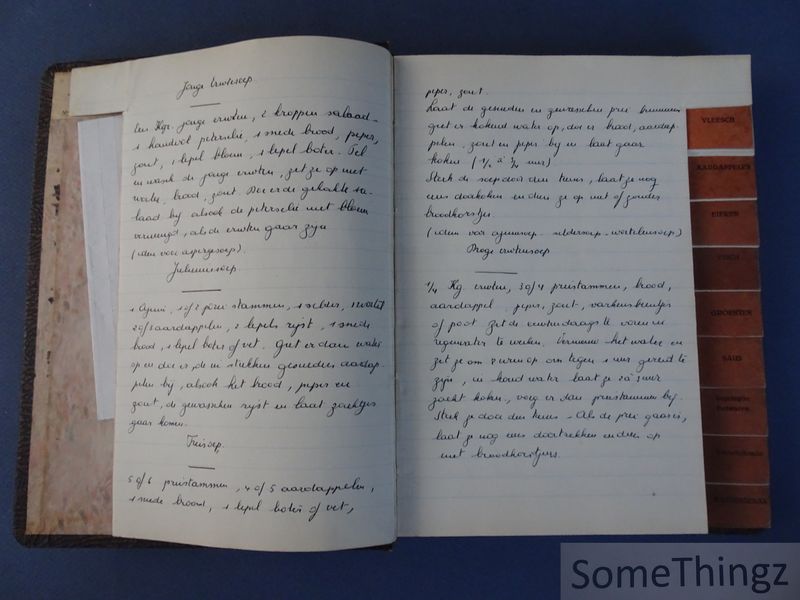 Jonge Erwtesoep
Een Kgr. jonge erwten, 2 kroppen salaad-
1 handvol peterselie, 1 snede brood, peper,
zout, 1 lepel bloem, 1 lepel boter. Pel
en wasch de jonge erwten, zet ze op met
water, brood, zout. Doe er de gehakte sa-
laad bij alsook de peterselie met bloem
vermengd, als de erwten gaar zijn
(idem voor aspergesoep).
Juliennesoep
1 Ajuin, 1 of 2 prei stammen, 1 selder, 1 wortel
2 of 3 aardappelen, 2 lepels rijst, 1 snede
brood, 1 lepel boter of vet. Giet er dan water
op en doe er de in stukken gesneden aardap-
pelen bij, alsook het brood, peper en
zout, de gewasschen rijst en laat zachtjes
gaar komen.
Preisoep
5 of 6 preistammen, 4 of 5 aardappelen,
1 snede brood, 1 lepel boter of vet,
peper, zout.
Laat de gesneden en gewasschen prei
giet er kokend water op, doe er brood, aardap-
pelen, zout en peper bij en laat gaar
koken (1/2 à 3/4 uur)
Steek de soep door den teems, laat ze nog
eens doorkoken en dien ze op met of zonder
broodkorstjes.
(idem voor ajuinsoep - seldersoep - wortelensoep)
Droge erwtensoep
1/4 Kg erwten, 3 of 4 preistammen, brood,
aardappel, peper, zout, varkensbeentjes
of poot. Zet de erwten daags te voren in
regenwater te weeken. Vernieuw het water en
zet ze om 8 uren op om tegen 1 uur gereed te
zijn, in koud water laat ze 2 à 3 uur
zacht koken, voeg er dan preistammen bij.
Steek ze door den teems - Als de prei gaar is,
laat ze nog eens doortrekken en dien op
met broodkorstjes.
VLEESCH
AARDAPPELEN
EIEREN
VISCH
GROENTEN
SAUS
SomeThingz